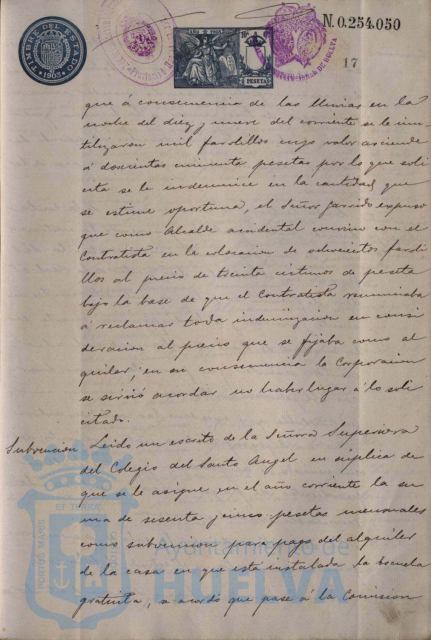 TIMBRE DEL ESTADO
1903
AÑO D 1903
PESETA
N. 0.254.050
17
que á consecuencia de las lluvias en la
noche del diez y nueve del corriente se le inu
tilizaron mil fardillos cuyo valor asciende
á doscientas cincuenta pesetas por lo que soli
cita se le indemnice en la cantidad que
se estime oportuna, el Señor Garrido expuso
que como Alcalde accidental convino con el
Contratista en la colocacion de ochocientos fardi
llos al precio de treinta centimos de peseta
bajo la base de que el Contratista renunciaba
á reclamar toda indemnizacion en consi
deracion al precio que se fijaba como al
quiler, en su consecuencia la Corporacion
se sirvió acordar no haber lugar á lo soli
citado.
Subvencion Leido un escrito de la Señora Superiora
del Colegio del Santo Angel en súplica de
que se le asigne en el año corriente la su
ma de sesenta y cinco pesetas mensuales
como subvencion para pago del alquiler
de la casa en que esta instalada la Escuela
gratuita, se acordó que pase á la Comision
Ayuntamiento de
HUELVA